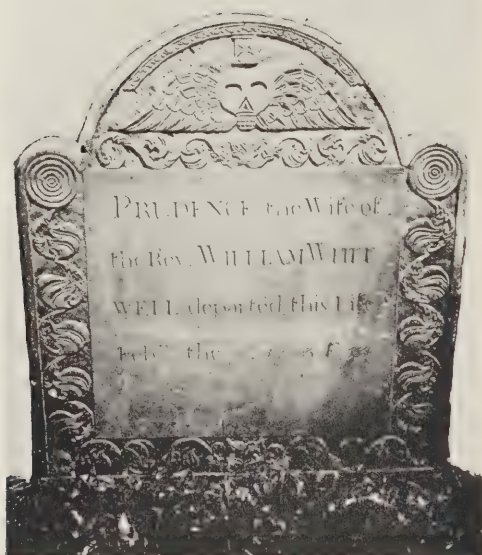 PRUDENCE the Wife of
the Rev. WILLIAM WHIT
WELL departed this Life
the